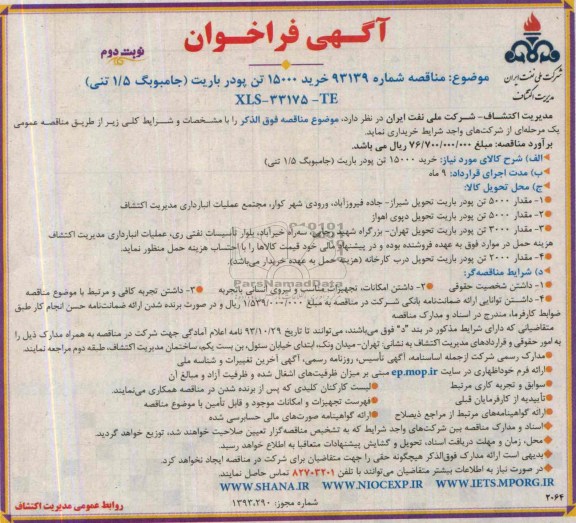 آگهی فراخوان
نوبت دوم
شرکت ملی نفت ایران
مدیریت اکتشاف
موضوع: مناقصه شماره ۹۳۱۳۹ خرید ۱۵۰۰۰ تن پودر باریت (جامبوبگ ۱/۵ تنی)
XLS-۳۳۱۷۵ -TE
مدیریت اکتشاف- شرکت ملی نفت ایران در نظر دارد، موضوع مناقصه فوق الذکر را با مشخصات و شرایط کلی زیر از طریق مناقصه عمومی
یک مرحله‌ای از شرکت‌های واجد شرایط خریداری نماید.
برآورد مناقصه: مبلغ ۷۶/۷۰۰/۰۰۰/۰۰۰ ریال می باشد.
الف) شرح کالای مورد نیاز: خرید ۱۵۰۰۰ تن پودر باریت (جامبوبگ ۱/۵ تنی)
ب) مدت اجرای قرارداد: ۹ ماه
ج) محل تحویل کالا:
۱- مقدار ۵۰۰۰ تن پودر باریت تحویل شیراز- جاده فیروزآباد، ورودی شهر کوار، مجتمع عملیات انبارداری مدیریت اکتشاف
۲- مقدار ۵۰۰۰ تن پودر باریت تحویل دپوی اهواز
۳- مقدار ۳۰۰۰ تن پودر باریت تحویل تهران- بزرگراه شهید رجایی، سه‌راه خیرآباد، بلوار تأسیسات نفتی ری، عملیات انبارداری مدیریت اکتشاف
هزینه حمل در موارد فوق به عهده فروشنده بوده و در پیشنهاد مالی خود قیمت کالاها را با احتساب هزینه حمل منظور نماید.
۴- مقدار ۲۰۰۰ تن پودر باریت تحویل درب کارخانه (هزینه حمل به عهده خریدار می‌باشد).
د) شرایط مناقصه‌گر:
۱- داشتن شخصیت حقوقی ۲- داشتن امکانات، تجهیزات مناسب و نیروی انسانی باتجربه ۳- داشتن تجربه کافی و مرتبط با موضوع مناقصه
۴- داشتن توانایی ارائه ضمانتنامه بانکی شرکت در مناقصه به مبلغ ۱/۵۳۹/۰۰۰/۰۰۰ ریال و در صورت برنده شدن ارائه ضمانتنامه حسن انجام کار طبق
ضوابط کارفرما، مندرج در اسناد و مدارک مناقصه
متقاضیانی که دارای شرایط مذکور در بند "د" فوق می‌باشند، می‌توانند تا تاریخ ۹۳/۱۰/۲۹ نامه اعلام آمادگی جهت شرکت در مناقصه به همراه مدارک ذیل را
به امور حقوقی و قراردادهای مدیریت اکتشاف به نشانی: تهران- میدان ونک، ابتدای خیابان سئول، بن بست یکم، ساختمان مدیریت اکتشاف، طبقه دوم مراجعه نمایند.
مدارک رسمی شرکت ازجمله اساسنامه، آگهی تأسیس، روزنامه رسمی، آگهی آخرین تغییرات و شناسه ملی
ارائه فرم خوداظهاری در سایت ep.mop.ir مبنی بر میزان ظرفیت‌های اشغال شده و ظرفیت آزاد و مبالغ آن
سوابق و تجربه کاری مرتبط لیست کارکنان کلیدی که پس از برنده شدن در مناقصه همکاری می‌نمایند.
تأییدیه از کارفرمایان قبلی فهرست تجهیزات و امکانات موجود و قابل تأمین با موضوع مناقصه
ارائه گواهینامه‌های مرتبط از مراجع ذیصلاح ارائه گواهینامه صورت‌های مالی حسابرسی شده
اسناد و مدارک مناقصه بین شرکت‌های واجد شرایط که به تشخیص مناقصه‌گزار تعیین صلاحیت خواهند شد، توزیع خواهد گردید.
محل، زمان و مهلت دریافت اسناد، تحویل و گشایش پیشنهادات متعاقبا به اطلاع خواهد رسید.
بدیهی است ارائه مدارک فوق‌الذکر هیچگونه حقی را جهت متقاضیان برای شرکت در مناقصه ایجاد نخواهد کرد.
در صورت نیاز به اطلاعات بیشتر متقاضیان می‌توانند با تلفن ۸۲۷۰۳۲۰۱ تماس حاصل نمایند.
WWW.SHANA.IR WWW.NIOCEXP.IR WWW.IETS.MPORG.IR
۲۰۶۴
شماره مجوز: ۱۳۹۳.۲۹۰
روابط عمومی مدیریت اکتشاف
ParsNamadData